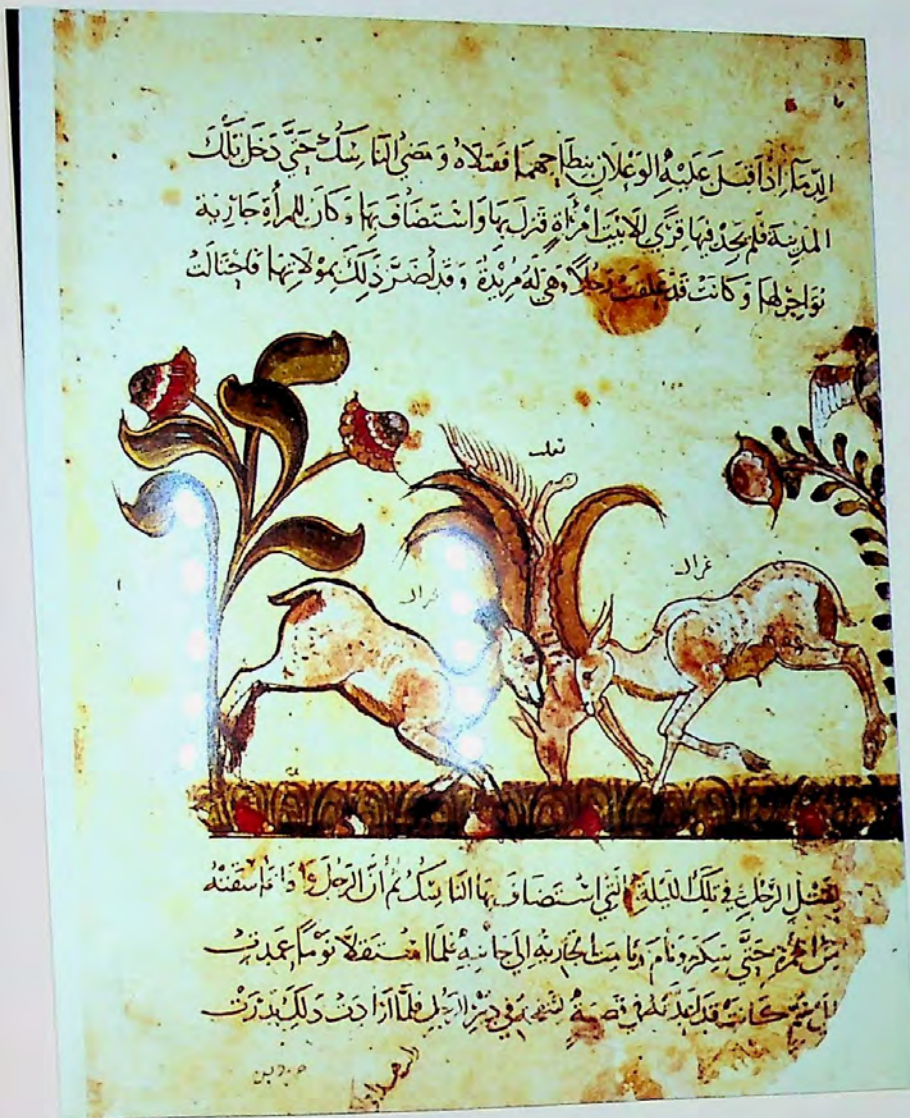 الدماء إذ أقبل عليه الوعلان بنطاحهما فقتلاه ومضى الناسك حتى دخل تلك
المدينة فلم يجد فيها قرى إلا بيت امرأة فنزل بها واستضاف بها وكان للمرأة جارية
تؤاجرها وكانت قد علقت رجلا وهي له مريدة وقد أضر ذلك بمولاتها فاحتالت
ثعلب
غزال
غزال
لقتل الرجل في تلك الليلة التي استضاف بها الناسك ثم أن الرجل وافا فاسقته
من الخمرة حتى سكر ونام ونامت الجارية إلى جانبه فلما استثقلا نوما عمدت
كانت قد أعدته في قصبة لتنفخه في دبر الرجل فلما أرادت ذلك بدرت